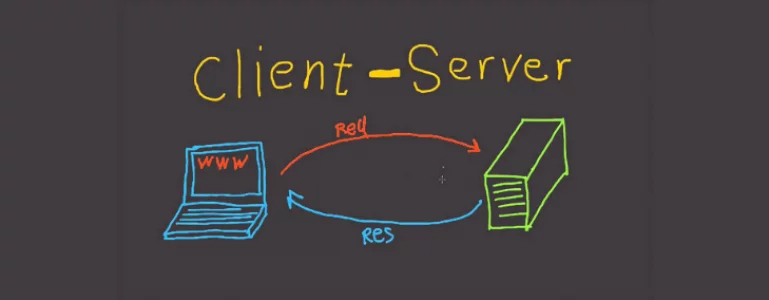 Client - Server
Req
www
Res